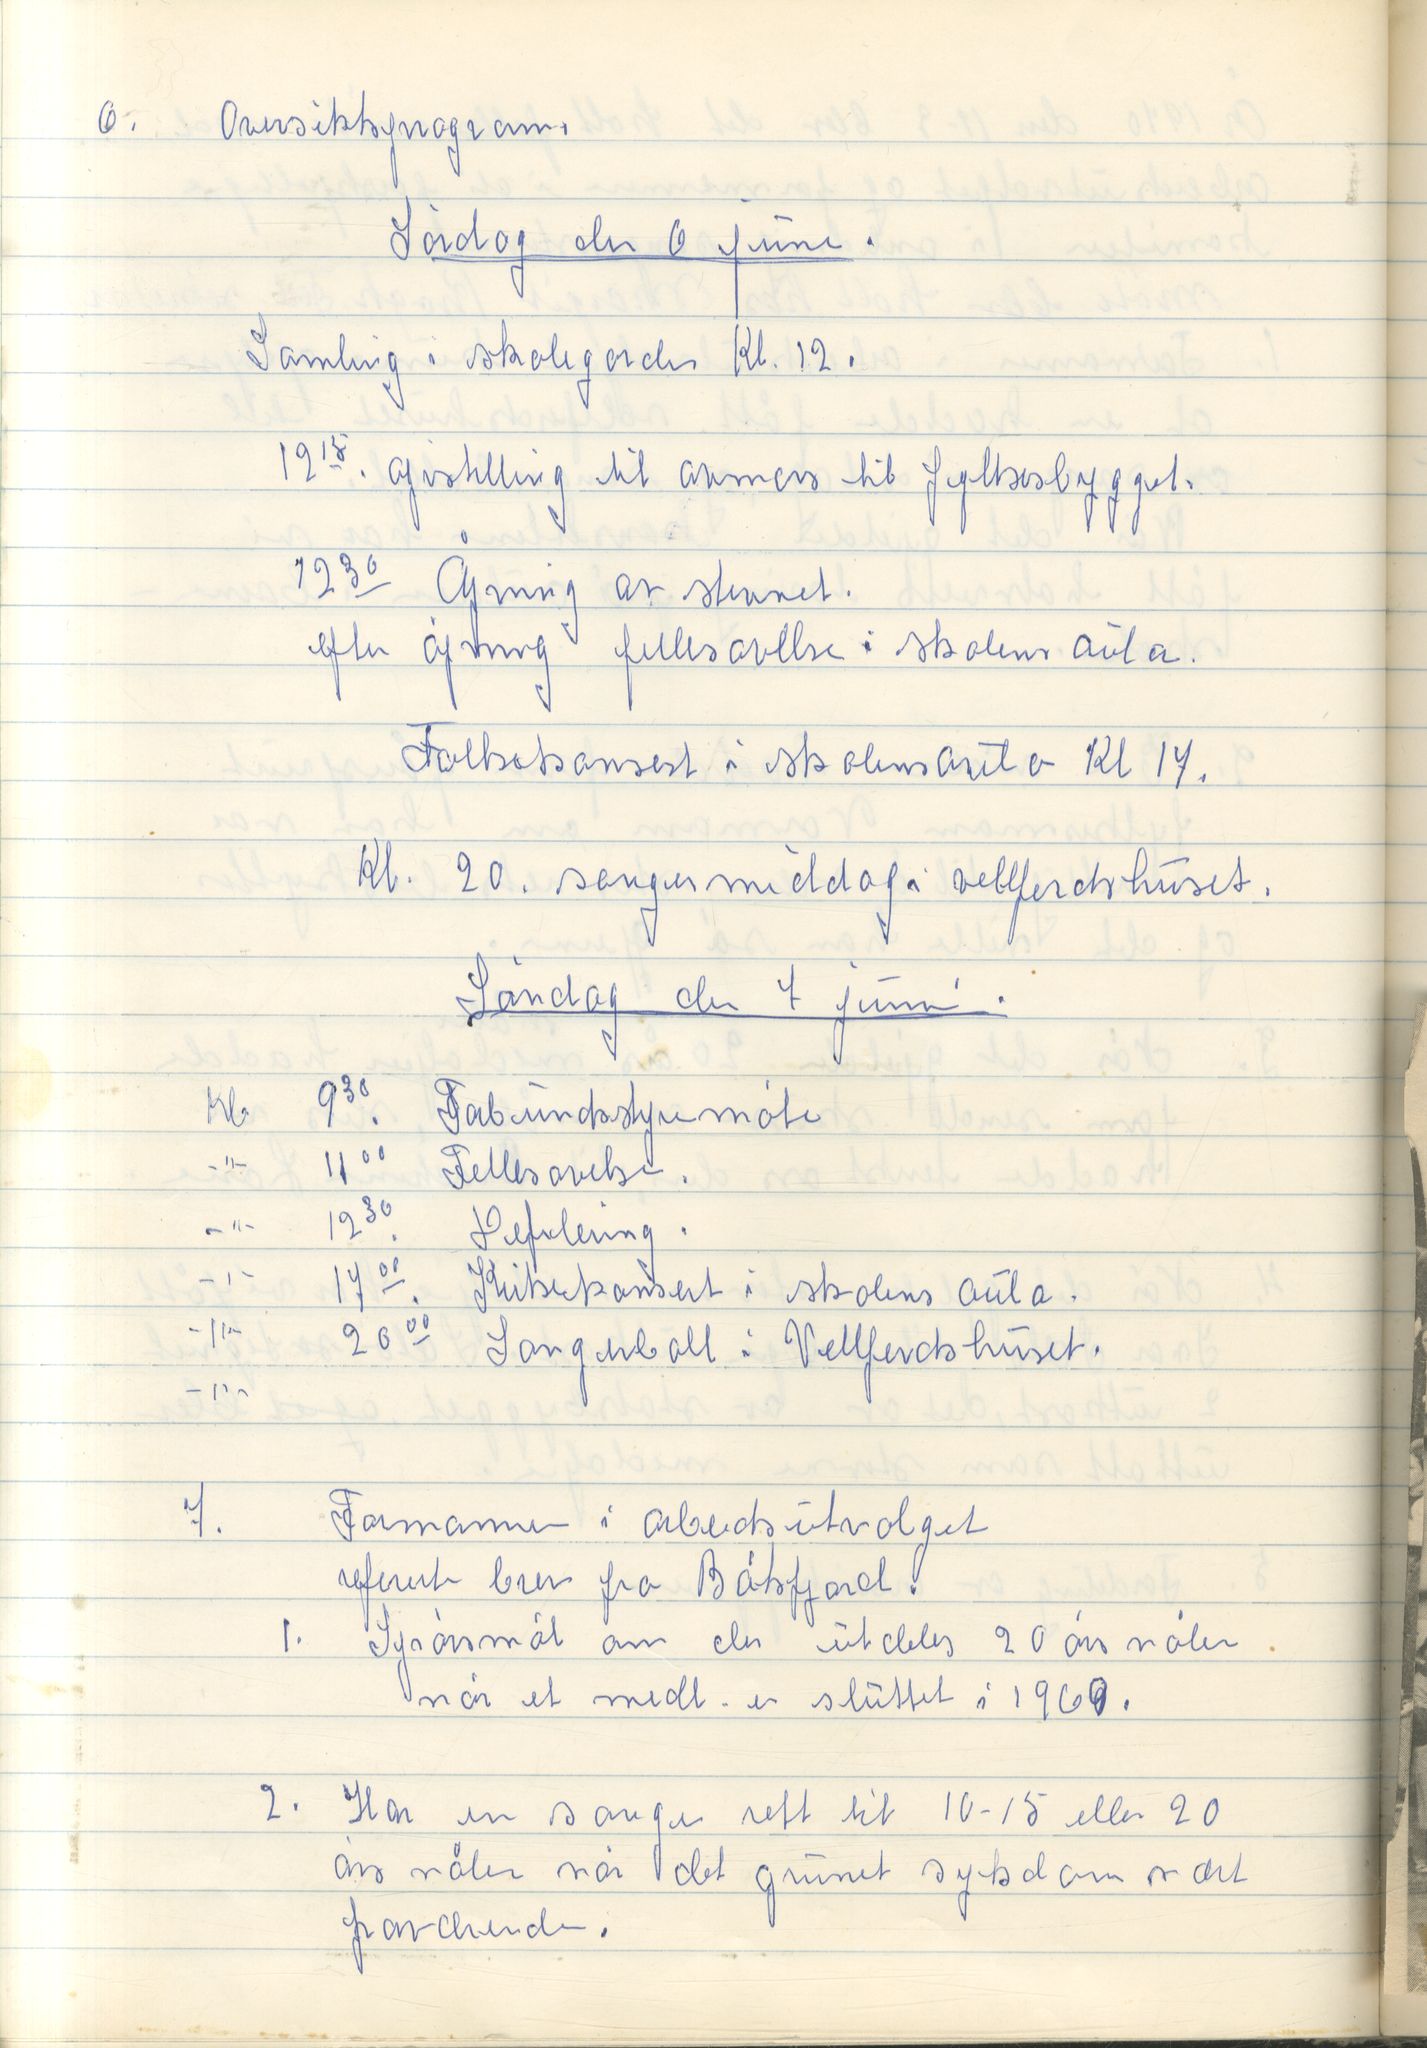 6. Oversiktsprogram.
Lördag den 6 juni.
Samling i skolegården Kl. 12.
12 15. Opistilling til avmars til Fylkesbygget.
12 30 Öpning av stevnet.
efter öpning fellesövelse i skolens aula.
Folkekonsert i skolens aula Kl 17.
Kl. 20. sangermiddag i velferdshuset.
Söndag den 7 juni.
Kl 9 30. Forbundsstyremöte
-"- 11 00 Fellesövelse.
-"- 12 30. Defilering.
-"- 17 00. Kirkekonsert i skolens aula.
-"- 20 00 Sangerball i Velferdshuset.
-"-
7. Formannen i arbeidsutvalget
referert brev fra Båtsfjord.
1. Spörsmål om der utdeles 20 års nåler
når et medl. er sluttet i 1969.
2. Har en sanger rett til 10-15 eller 20
års nåler når det grunnet sykdom vært
fraværende.